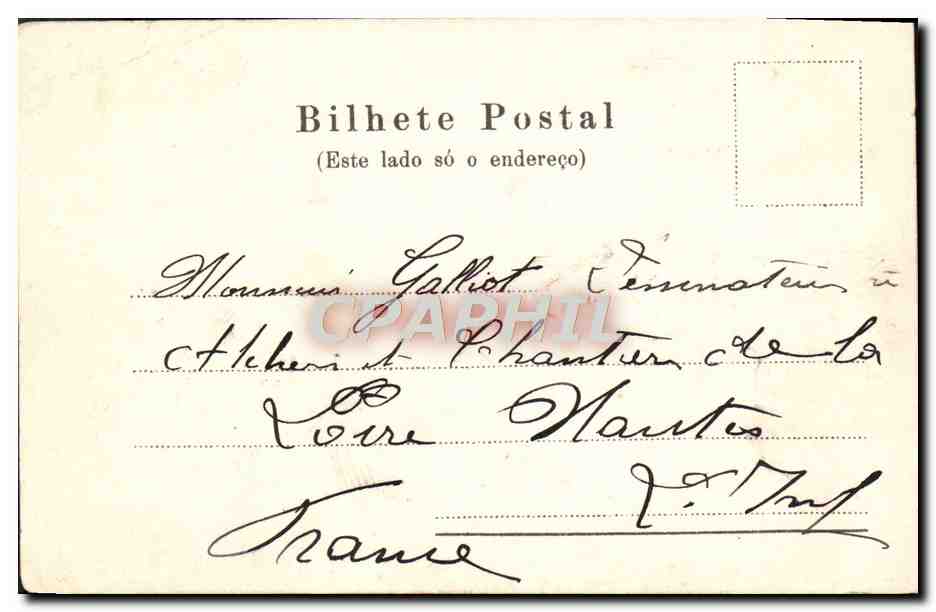 Bilhete Postal
(Este lado só o endereço)
Monsieur Galliot Dessinateur à
CPAPHIL
Chantiers de la
Loire Nantes
L. Inf
France